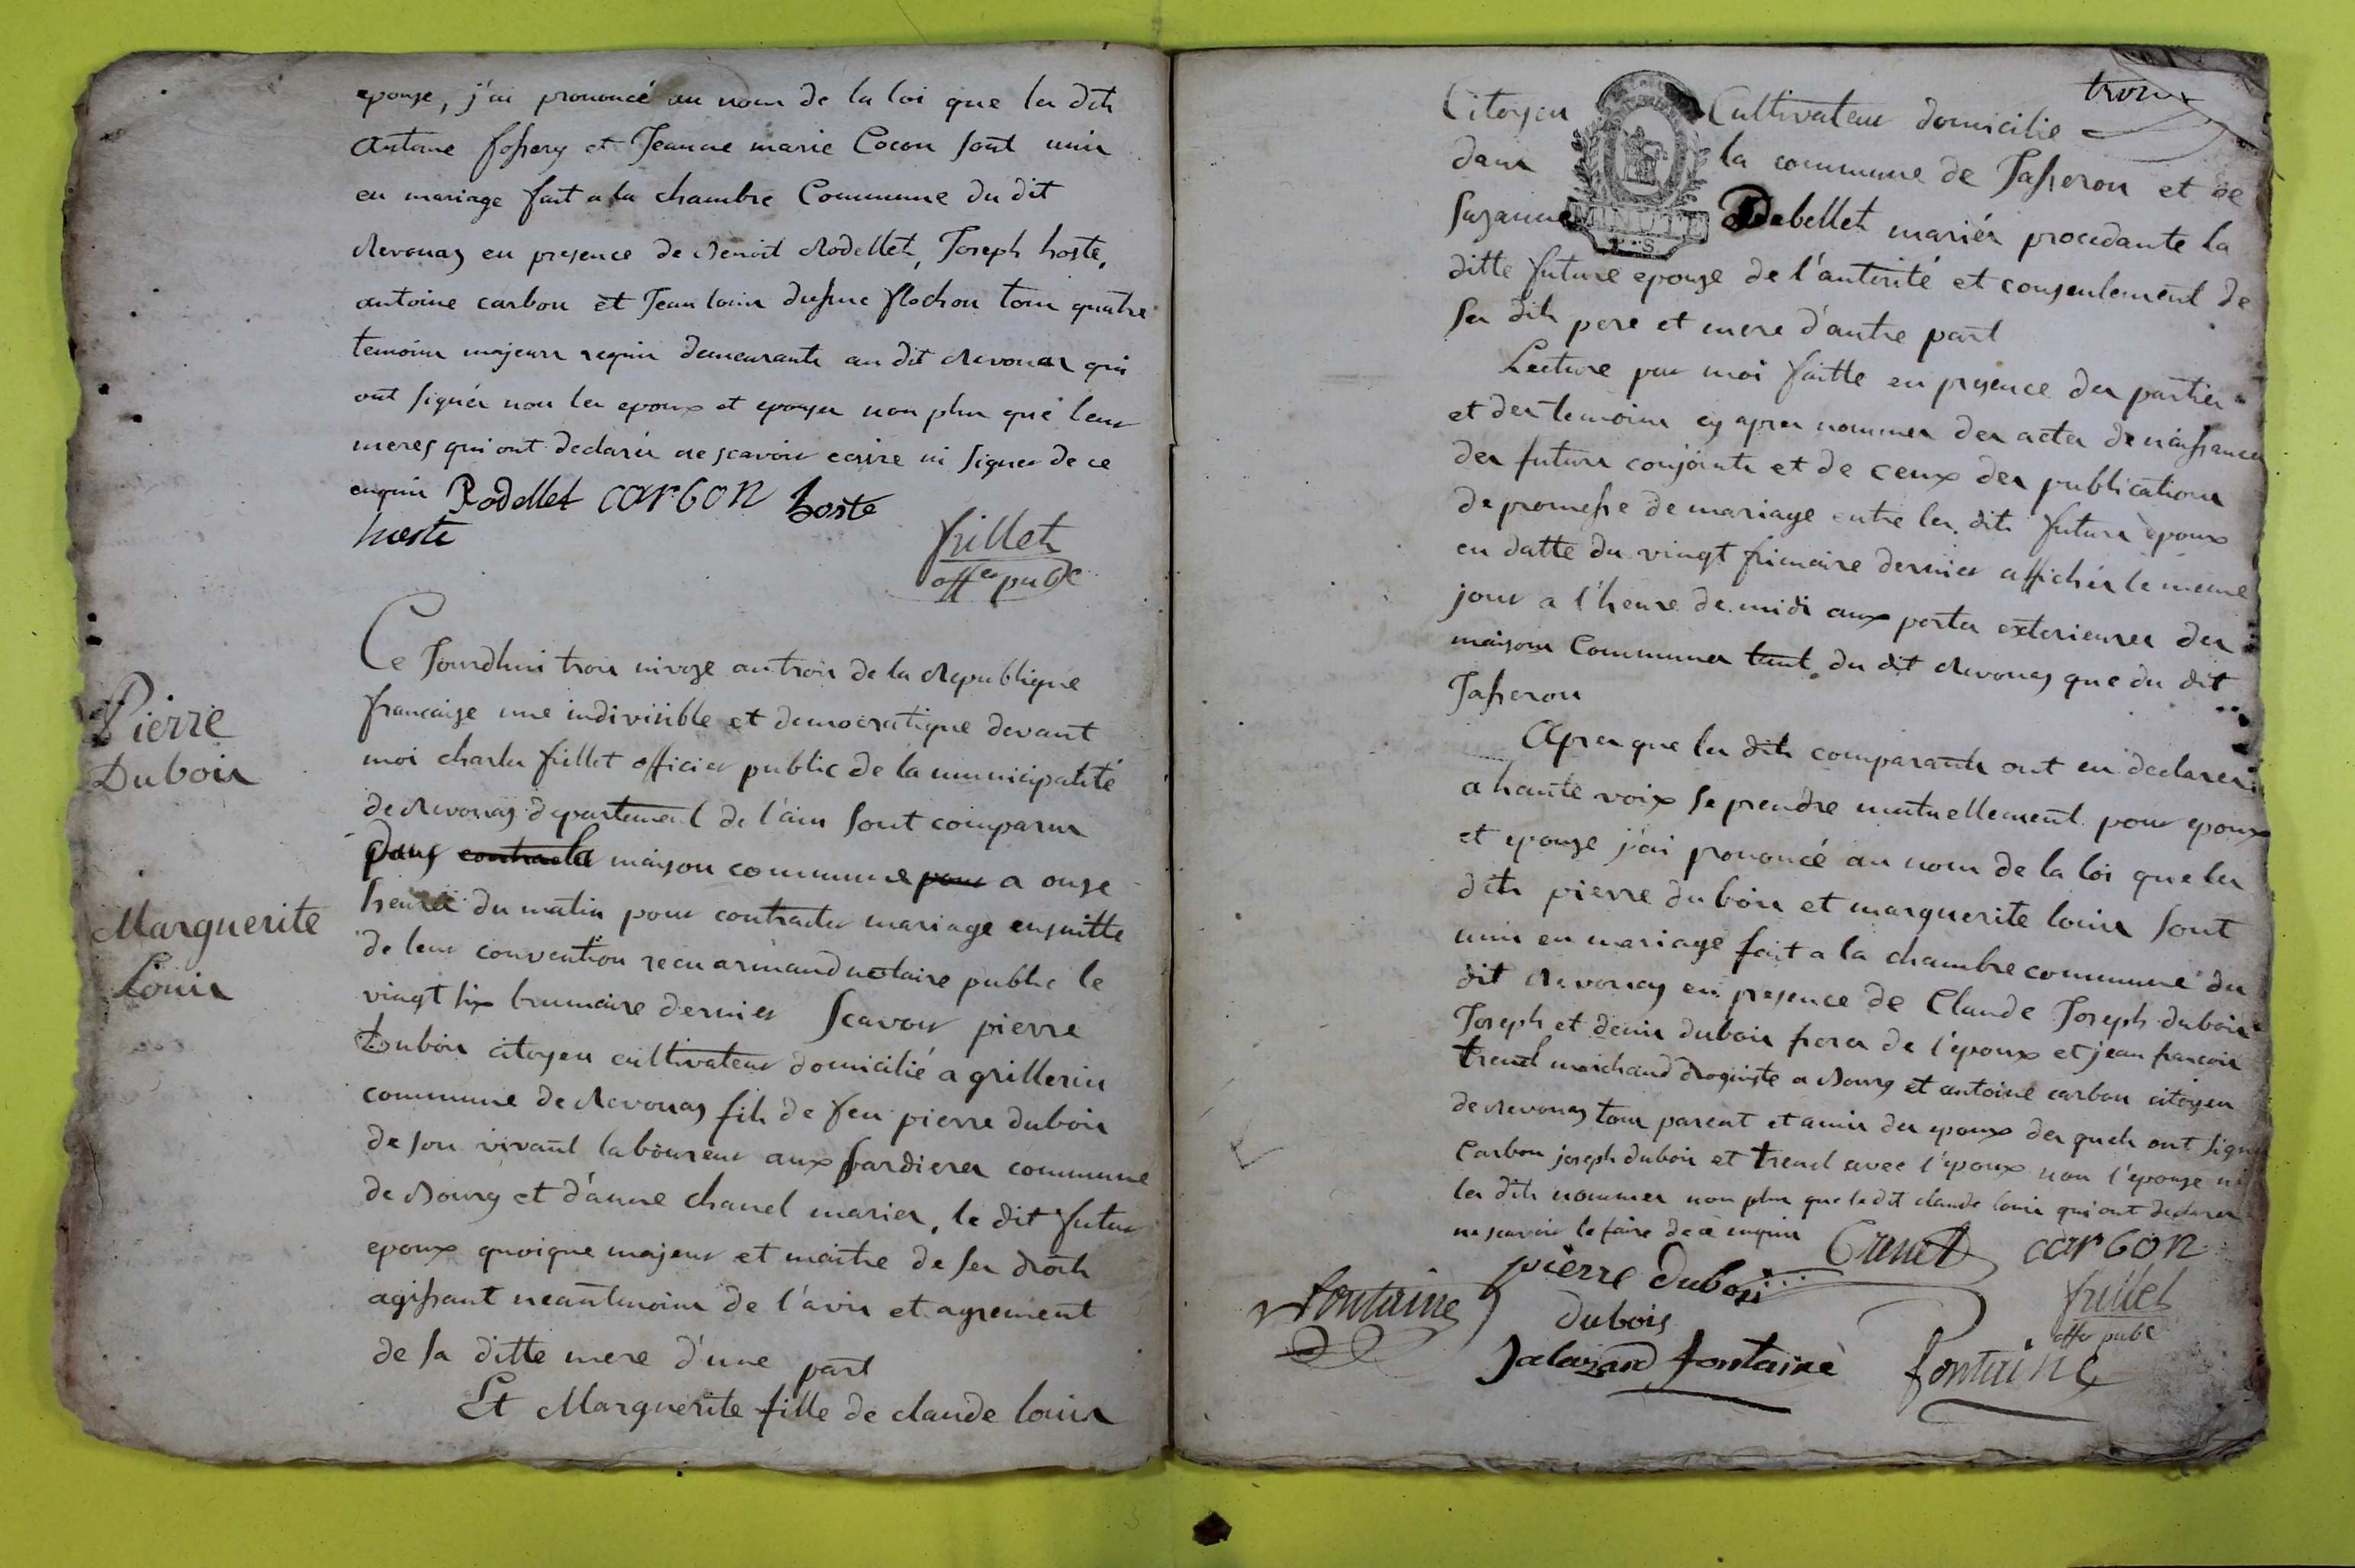 epouse, j'ai prononcé au nom de la loi que les dits
Antoine fossery et Jeanne marie Cocon sont unis
en mariage fait a la chambre Commune du dit
Revonas en presence de Benoit Rodellet, Joseph hoste,
antoine carbon et Jean louis flochon tous quatre
temoins majeurs requis demeurants au dit Revonas qui
ont signés non les epoux et epouses non plus que leurs
meres qui ont declarés ne scavoir ecrire ni signer de ce
enquis Rodellet carbon hoste
hoste
frillet
offer public
Ce Jourdhui trois nivose an trois de la Republique
francaise une indivisible et democratique devant
moi charles frillet officier public de la municipalité
de Revonas departement de l'ain sont comparus
Pierre
Dubois
dans contracta la maison commune pour a onze
heures du matin pour contracter mariage ensuitte
Marguerite
Louis
de leur convention recu armand notaire public le
vingt six brumaire dernier Scavoir pierre
Dubois citoyen cultivateur domicilié a grillerin
commune de Revonas fils de feu pierre dubois
de son vivant laboureur aux fardieres commune
de Bourg et d'anne chanel mariés, le dit futur
epoux quoique majeur et maitre de ses droits
agissant neantmoins de l'avis et agrement
de sa ditte mere d'une part
Et Marguerite fille de claude louis
trois
Citoyen Cultivateur domicilié
dans la commune de Jasseron et de
MINUTE
Suzanne Debellet mariés procedante la
ditte future epouse de l'autorité et consentement de
ses dits pere et mere d'autre part
Lecture par moi faitte en presence des parties
et des temoins cy apres nommes des actes de naissance
des futurs conjoints et de ceux des publications
de promesse de mariage entre les dits futurs epoux
en datte du vingt frimaire dernier affichés le meme
jour a l'heure de midi aux portes exterieures des
maisons Communes tant du dit Revonas que du dit
Jasseron
Apres que les dits comparants ont eu declarer
a haute voix se prendre mutuellement pour epoux
et epouse j'ai prononcé au nom de la loi que les
dits pierre dubois et marguerite louis sont
unis en mariage fait a la chambre commune du
dit Revonas en presence de Claude Joseph dubois
Joseph et denis dubois freres de l'epoux et jean francois
trend marchand droguiste a Bourg et antoine carbon citoyen
de Revonas tous parent et amis des epoux des quels ont signé
Carbon joseph dubois et avec l'epoux non l'epouse ni
les dits nommes non plus que le dit claude louis qui ont declares
ne scavoir le faire de ce enquis carbon
pierre dubois
fontaine
dubois
frillet
offer pubc
Salazard fontaine
fontaine